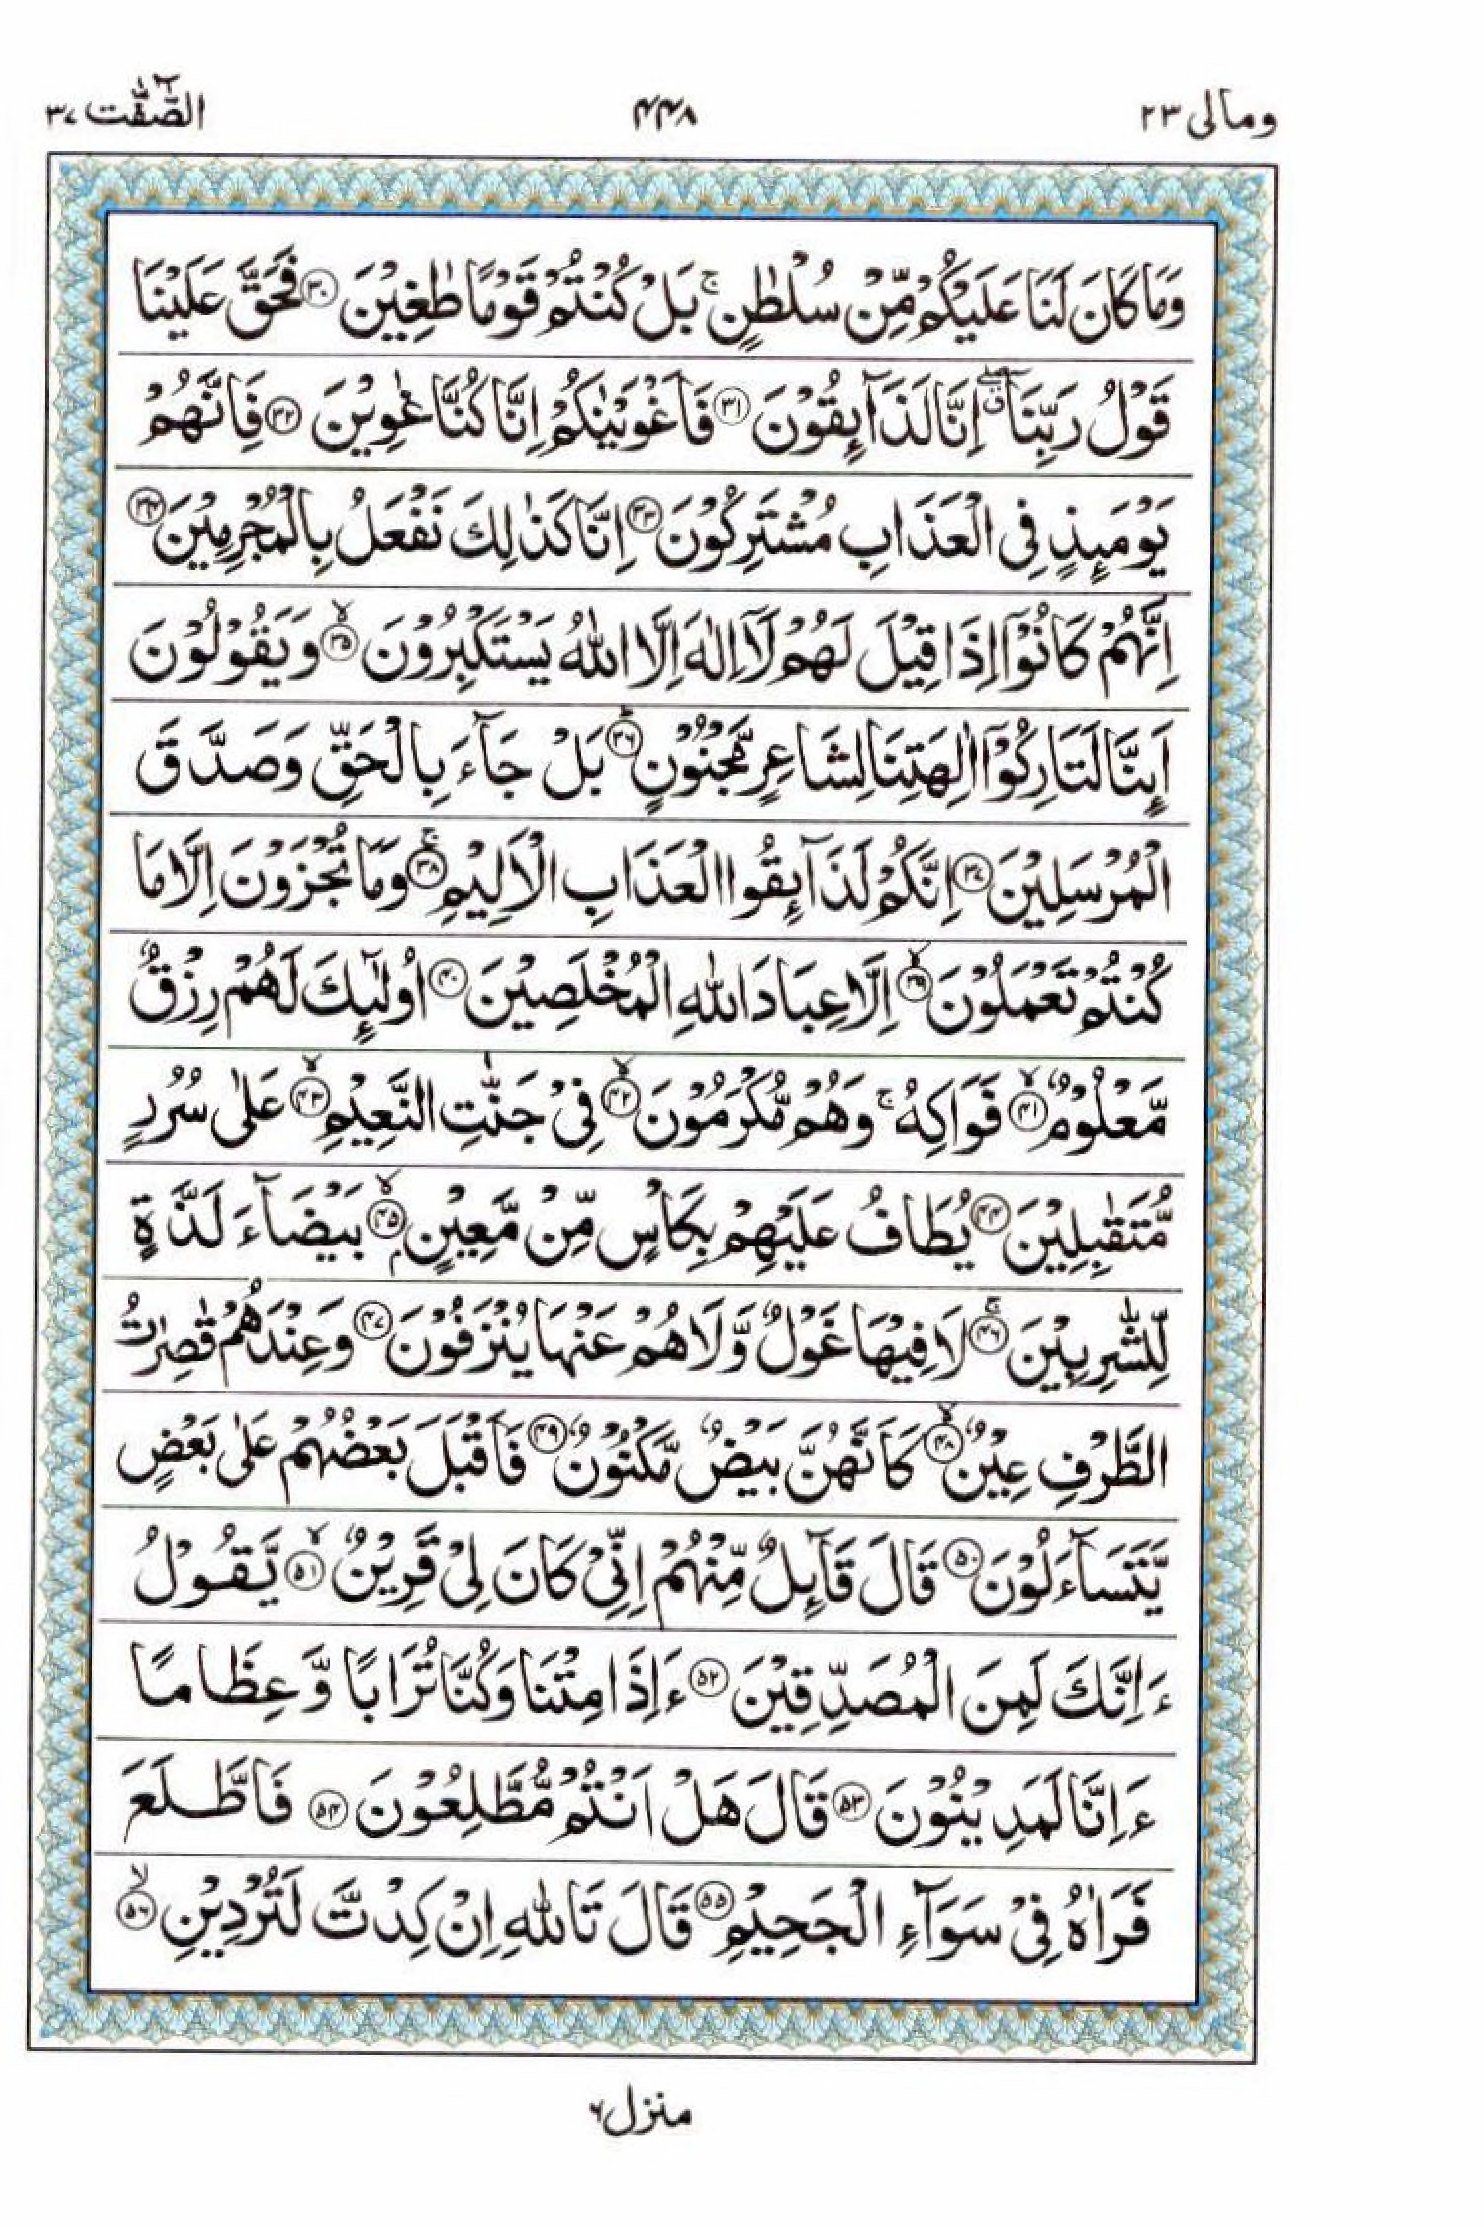 ومالی ۲۳
۴۴۸
الصّٰٓفّٰت ۳۷
وَمَا كَانَ لَنَا عَلَيْكُمْ مِّنْ سُلْطٰنٍ ۚ بَلْ كُنْتُمْ قَوْمًا طٰغِيْنَ ۳۰ فَحَقَّ عَلَيْنَا
قَوْلُ رَبِّنَآ ۖ اِنَّا لَذَآىِٕقُوْنَ ۳۱ فَاَغْوَيْنٰكُمْ اِنَّا كُنَّا غٰوِيْنَ ۳۲ فَاِنَّهُمْ
يَوْمَىِٕذٍ فِي الْعَذَابِ مُشْتَرِكُوْنَ ۳۳ اِنَّا كَذٰلِكَ نَفْعَلُ بِالْمُجْرِمِيْنَ ۳۴
اِنَّهُمْ كَانُوْٓا اِذَا قِيْلَ لَهُمْ لَآ اِلٰهَ اِلَّا اللّٰهُ يَسْتَكْبِرُوْنَ ۳۵ۙ وَيَقُوْلُوْنَ
اَىِٕنَّا لَتَارِكُوْٓا اٰلِهَتِنَا لِشَاعِرٍ مَّجْنُوْنٍ ۳۶ؕ بَلْ جَآءَ بِالْحَقِّ وَصَدَّقَ
الْمُرْسَلِيْنَ ۳۷ اِنَّكُمْ لَذَآىِٕقُوا الْعَذَابِ الْاَلِيْمِ ۳۸ۚ وَمَا تُجْزَوْنَ اِلَّا مَا
كُنْتُمْ تَعْمَلُوْنَ ۳۹ۙ اِلَّا عِبَادَ اللّٰهِ الْمُخْلَصِيْنَ ۴۰ اُولٰٓىِٕكَ لَهُمْ رِزْقٌ
مَّعْلُوْمٌ ۴۱ۙ فَوَاكِهُ ۚ وَهُمْ مُّكْرَمُوْنَ ۴۲ۙ فِيْ جَنّٰتِ النَّعِيْمِ ۴۳ۙ عَلٰى سُرُرٍ
مُّتَقٰبِلِيْنَ ۴۴ يُطَافُ عَلَيْهِمْ بِكَاْسٍ مِّنْ مَّعِيْنٍۭ ۴۵ۙ بَيْضَآءَ لَذَّةٍ
لِّلشّٰرِبِيْنَ ۴۶ۚ لَا فِيْهَا غَوْلٌ وَّلَا هُمْ عَنْهَا يُنْزَفُوْنَ ۴۷ وَعِنْدَهُمْ قٰصِرٰتُ
الطَّرْفِ عِيْنٌ ۴۸ۙ كَاَنَّهُنَّ بَيْضٌ مَّكْنُوْنٌ ۴۹ فَاَقْبَلَ بَعْضُهُمْ عَلٰى بَعْضٍ
يَّتَسَآءَلُوْنَ ۵۰ قَالَ قَآىِٕلٌ مِّنْهُمْ اِنِّيْ كَانَ لِيْ قَرِيْنٌ ۵۱ۙ يَّقُوْلُ
ءَاِنَّكَ لَمِنَ الْمُصَدِّقِيْنَ ۵۲ ءَاِذَا مِتْنَا وَكُنَّا تُرَابًا وَّعِظَامًا
ءَاِنَّا لَمَدِيْنُوْنَ ۵۳ قَالَ هَلْ اَنْتُمْ مُّطَّلِعُوْنَ ۵۴ فَاطَّلَعَ
فَرَاٰهُ فِيْ سَوَآءِ الْجَحِيْمِ ۵۵ قَالَ تَاللّٰهِ اِنْ كِدْتَّ لَتُرْدِيْنِ ۵۶ۙ
منزل ۶